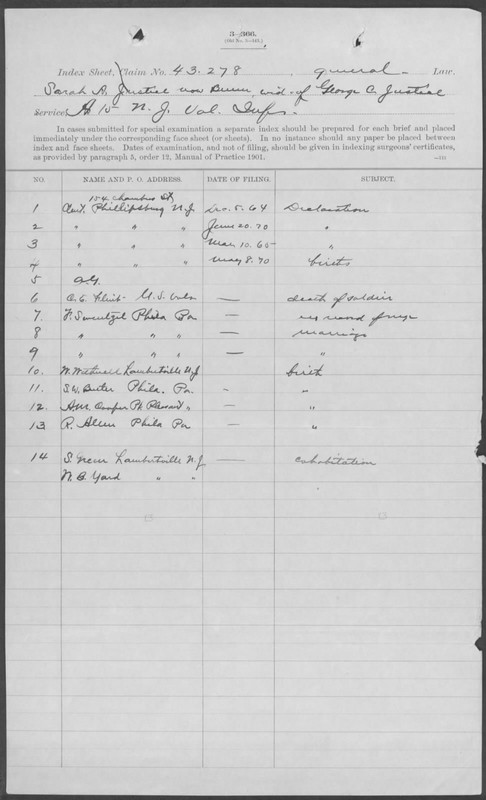 3—366.
Index Sheet, Claim No. 43.278, general Law.
Sarah A. Justice now, wid. of George C. Justice
Service: A 15 N. J. Vol. Infs.
In cases submitted for special examination a separate index should be prepared for each brief and placed
immediately under the corresponding face sheet (or sheets). In no instance should any paper be placed between
index and face sheets. Dates of examination, and not of filing, should be given in indexing surgeons' certificates,
as provided by paragraph 5, order 12, Manual of Practice 1901.
NO. NAME AND P. O. ADDRESS. DATE OF FILING. SUBJECT.
154 Chambers St
1 Clmt. Phillipsburg N. J. Dec. 5. 64 Declaration
2 " " " June 20. 70 "
3 " " " May 10. 65 "
4 " " " May 8. 70 births
5 A.G.
6 U.S. Vols — death of soldier
7. Phila Pa — record of mge
8 " " " — marriage
9 " " " — "
10. Lambertville N. J. birth
11. Phila. Pa. - "
12. Cooper Pt Pleasant " — "
13 R. Allen Phila Pa — "
14 S. Lambertville N. J. — cohabitation
N. B. Yard " "